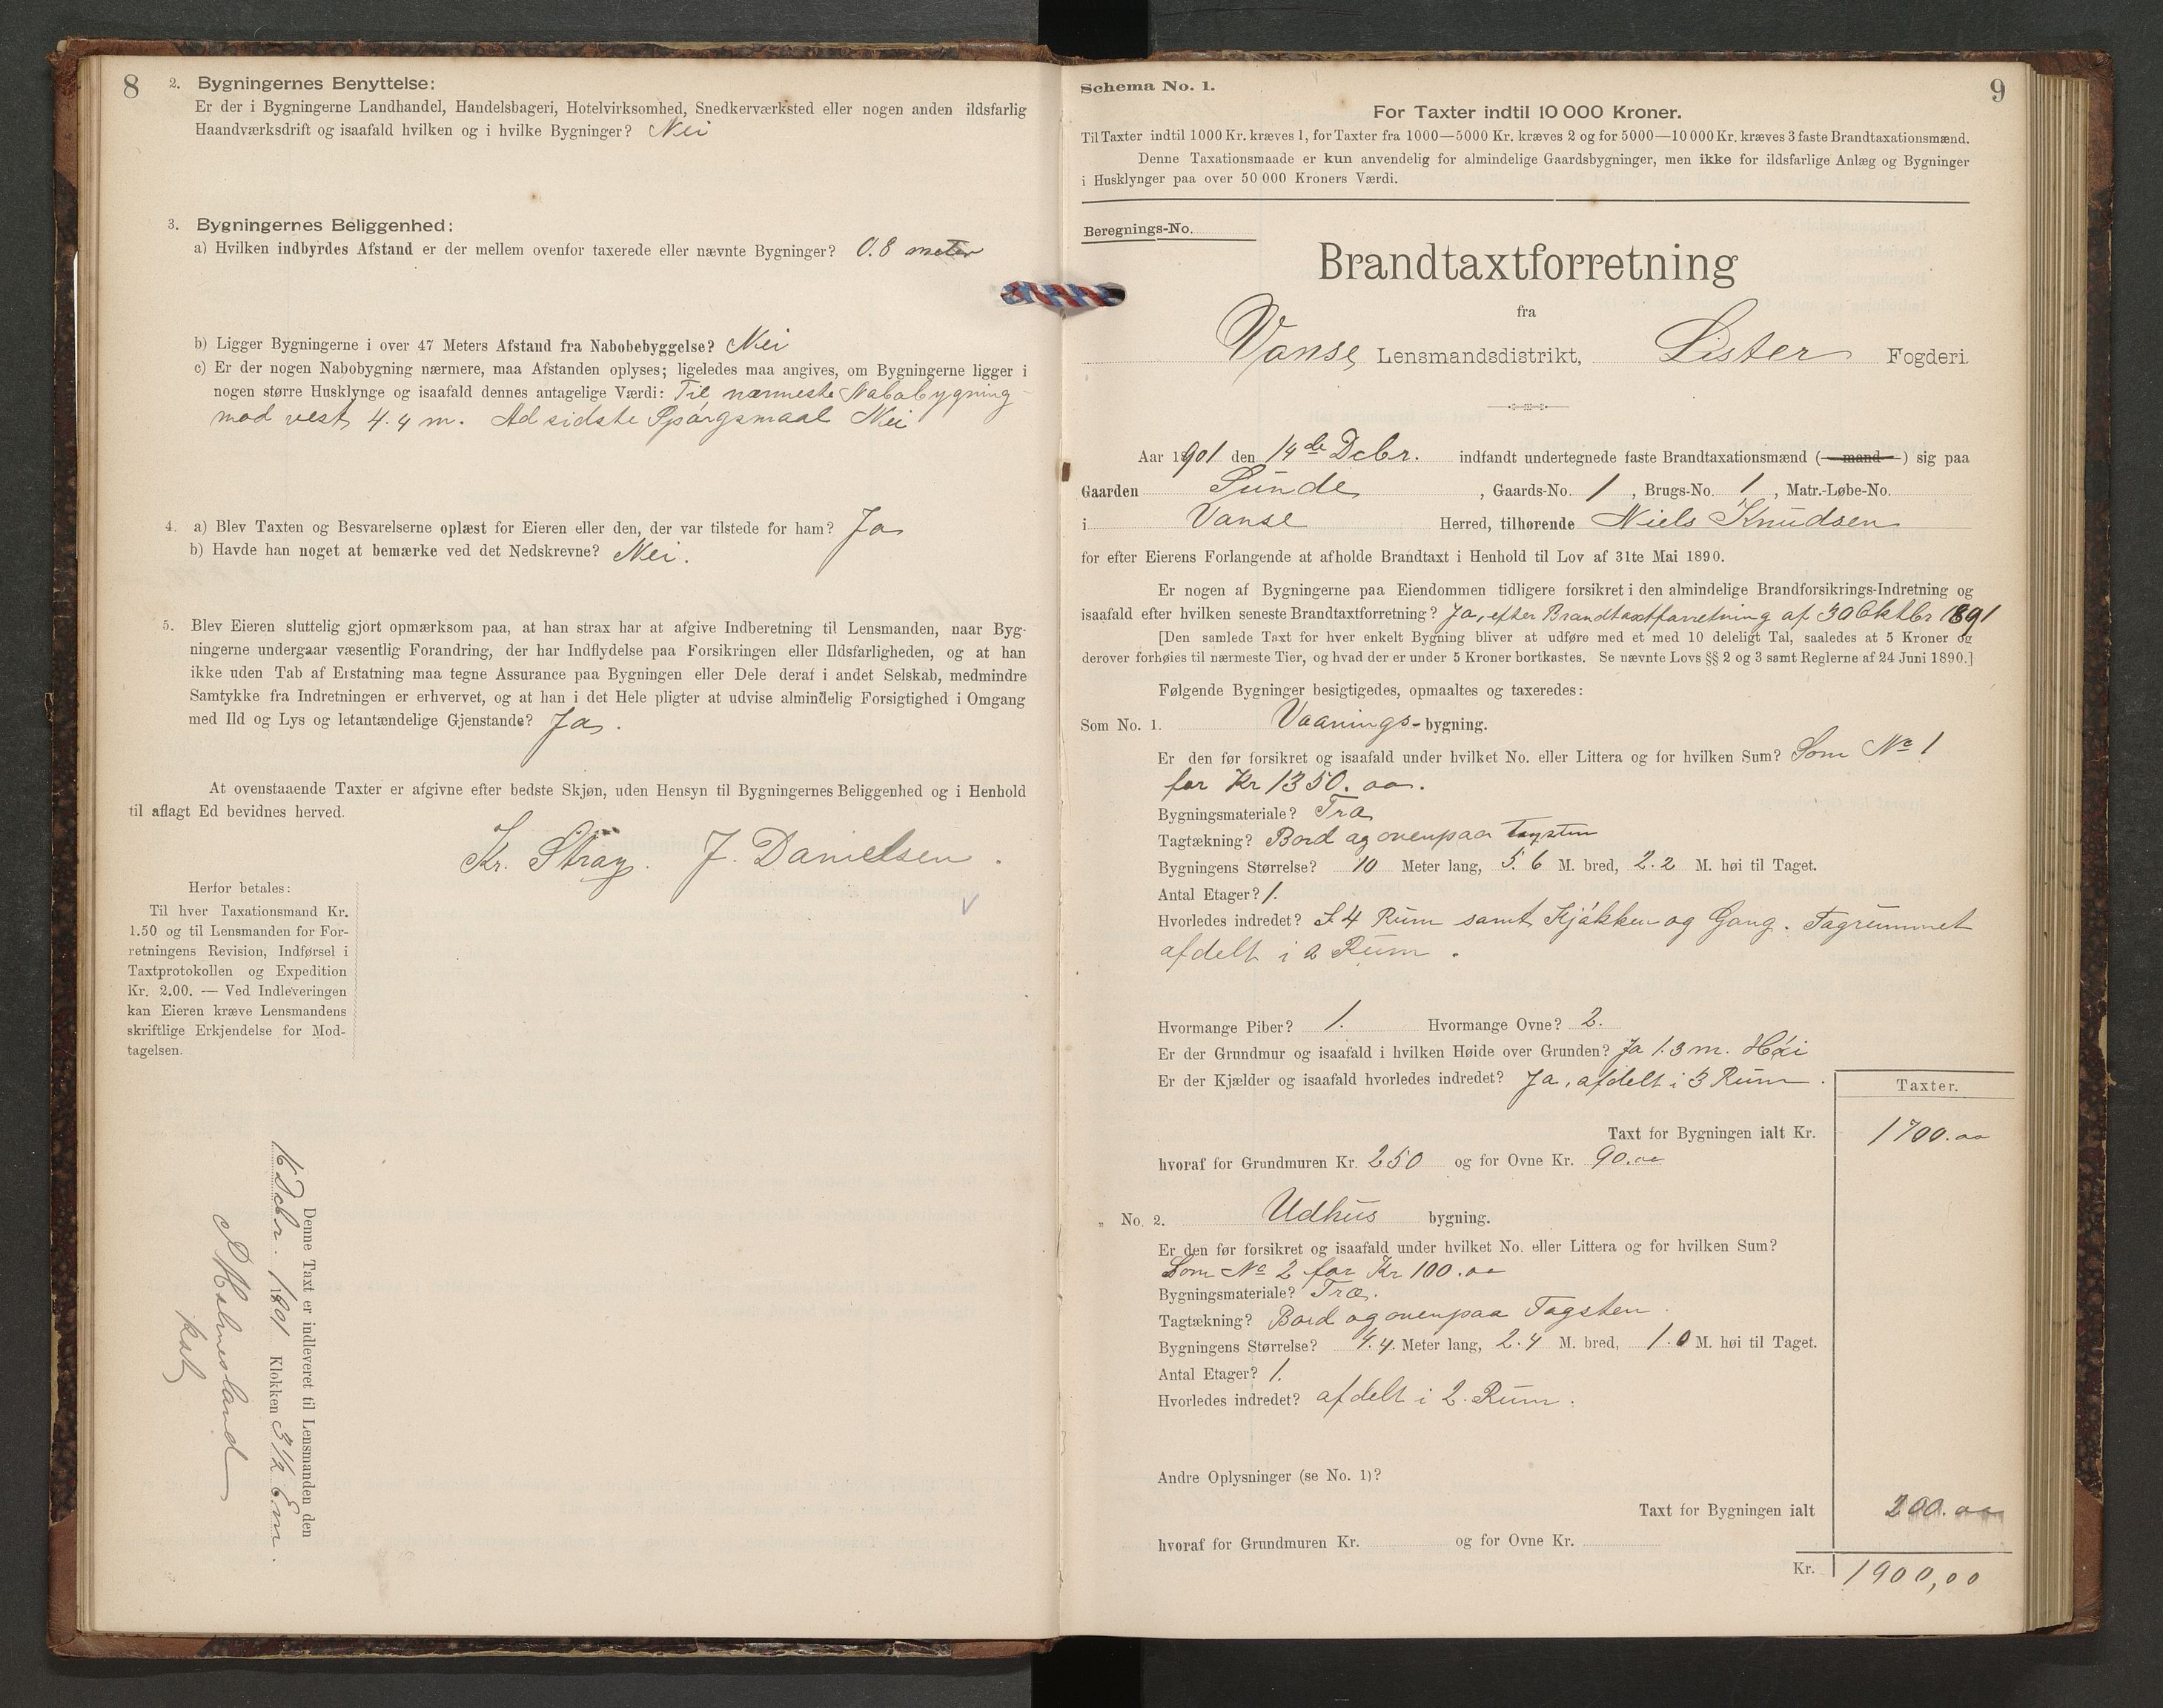 8
2. Bygningernes Benyttelse:
Er der i Bygningerne Landhandel, Handelsbageri, Hotelvirksomhed, Snedkerværksted eller nogen anden ildsfarlig
Haandværksdrift og isaafald hvilken og i hvilke Bygninger? Nei
3. Bygningernes Beliggenhed:
a) Hvilken indbyrdes Afstand er der mellem ovenfor taxerede eller nævnte Bygninger? 0.8 meter
b) Ligger Bygningerne i over 47 Meters Afstand fra Nabobebyggelse? Nei
c) Er der nogen Nabobygning nærmere, maa Afstanden oplyses; ligeledes maa angives, om Bygningerne ligger i
nogen større Husklynge og isaafald dennes antagelige Værdi: Til nærmeste Nabobygning
mod vest 4.4 m. Ad sidste Spørgsmaal Nei
4. a) Blev Taxten og Besvarelserne oplæst for Eieren eller den, der var tilstede for ham? Ja
b) Havde han noget at bemærke ved det Nedskrevne? Nei.
5. Blev Eieren sluttelig gjort opmærksom paa, at han strax har at afgive Indberetning til Lensmanden, naar Byg-
ningerne undergaar væsentlig Forandring, der har Indflydelse paa Forsikringen eller Ildsfarligheden, og at han
ikke uden Tab af Erstatning maa tegne Assurance paa Bygningen eller Dele deraf i andet Selskab, medmindre
Samtykke fra Indretningen er erhvervet, og at han i det Hele pligter at udvise almindelig Forsigtighed i Omgang
med Ild og Lys og letantændelige Gjenstande? Ja.
At ovenstaaende Taxter er afgivne efter bedste Skjøn, uden Hensyn til Bygningernes Beliggenhed og i Henhold
til aflagt Ed bevidnes herved.
Kr. Stray. J. Danielsen.
Herfor betales:
Til hver Taxationsmand Kr.
1.50 og til Lensmanden for For-
retningens Revision, Indførsel i
Taxtprotokollen og Expedition
Kr. 2.00. — Ved Indleveringen
kan Eieren kræve Lensmandens
skriftlige Erkjendelse for Mod-
tagelsen.
Denne Taxt er indleveret til Lensmanden den
16 Dcbr. 1901 Klokken 3 1/2 Em.
Helmesland
kst
9
Schema No. 1.
For Taxter indtil 10 000 Kroner.
Til Taxter indtil 1000 Kr. kræves 1, for Taxter fra 1000—5000 Kr. kræves 2 og for 5000—10 000 Kr. kræves 3 faste Brandtaxationsmænd.
Denne Taxationsmaade er kun anvendelig for almindelige Gaardsbygninger, men ikke for ildsfarlige Anlæg og Bygninger
i Husklynger paa over 50 000 Kroners Værdi.
Beregnings-No.
Brandtaxtforretning
fra
Vanse Lensmandsdistrikt, Lister Fogderi.
Aar 1901 den 14de Dcbr. indfandt undertegnede faste Brandtaxationsmænd (mand) sig paa
Gaarden Sunde, Gaards-No. 1, Brugs-No. 1, Matr.-Løbe-No.
i Vanse Herred, tilhørende Niels Knudsen
for efter Eierens Forlangende at afholde Brandtaxt i Henhold til Lov af 31te Mai 1890.
Er nogen af Bygningerne paa Eiendommen tidligere forsikret i den almindelige Brandforsikrings-Indretning og
isaafald efter hvilken seneste Brandtaxtforretning? Ja, efter Brandtaxtforretning af 30 Oktbr 1891
[Den samlede Taxt for hver enkelt Bygning bliver at udføre med et med 10 deleligt Tal, saaledes at 5 Kroner og
derover forhøies til nærmeste Tier, og hvad der er under 5 Kroner bortkastes. Se nævnte Lovs §§ 2 og 3 samt Reglerne af 24 Juni 1890.]
Følgende Bygninger besigtigedes, opmaaltes og taxeredes:
Som No. 1. Vaanings-bygning.
Er den før forsikret og isaafald under hvilket No. eller Littera og for hvilken Sum? Som No 1
for Kr 1350.00.
Bygningsmateriale? Træ
Tagtækning? Bord og ovenpaa Tagsten
Bygningens Størrelse? 10 Meter lang, 5.6 M. bred, 2.2 M. høi til Taget.
Antal Etager? 1.
Hvorledes indredet? I 4 Rum samt Kjøkken og Gang. Tagrummet
afdelt i 2 Rum.
Hvormange Piber? 1. Hvormange Ovne? 2.
Er der Grundmur og isaafald i hvilken Høide over Grunden? Ja 1.3 m. Høi
Er der Kjælder og isaafald hvorledes indredet? Ja, afdelt i 3 Rum.
Taxter.
Taxt for Bygningen ialt Kr. 1700.00
hvoraf for Grundmuren Kr. 250 og for Ovne Kr. 90.00
„ No. 2. Udhus bygning.
Er den før forsikret og isaafald under hvilket No. eller Littera og for hvilken Sum?
Som No 2 for Kr 100.00
Bygningsmateriale? Træ.
Tagtækning? Bord og ovenpaa Tagsten.
Bygningens Størrelse? 4.4. Meter lang, 2.4 M. bred, 1.0 M. høi til Taget.
Antal Etager? 1.
Hvorledes indredet? afdelt i 2. Rum.
Andre Oplysninger (se No. 1)?
Taxt for Bygningen ialt 200.00
hvoraf for Grundmuren Kr. og for Ovne Kr.
Kr. 1900,00